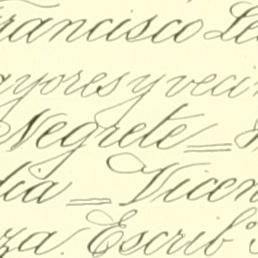 Francisco Le
ayores y veci
Negrete =
dia = Vicen
za. Escrib°